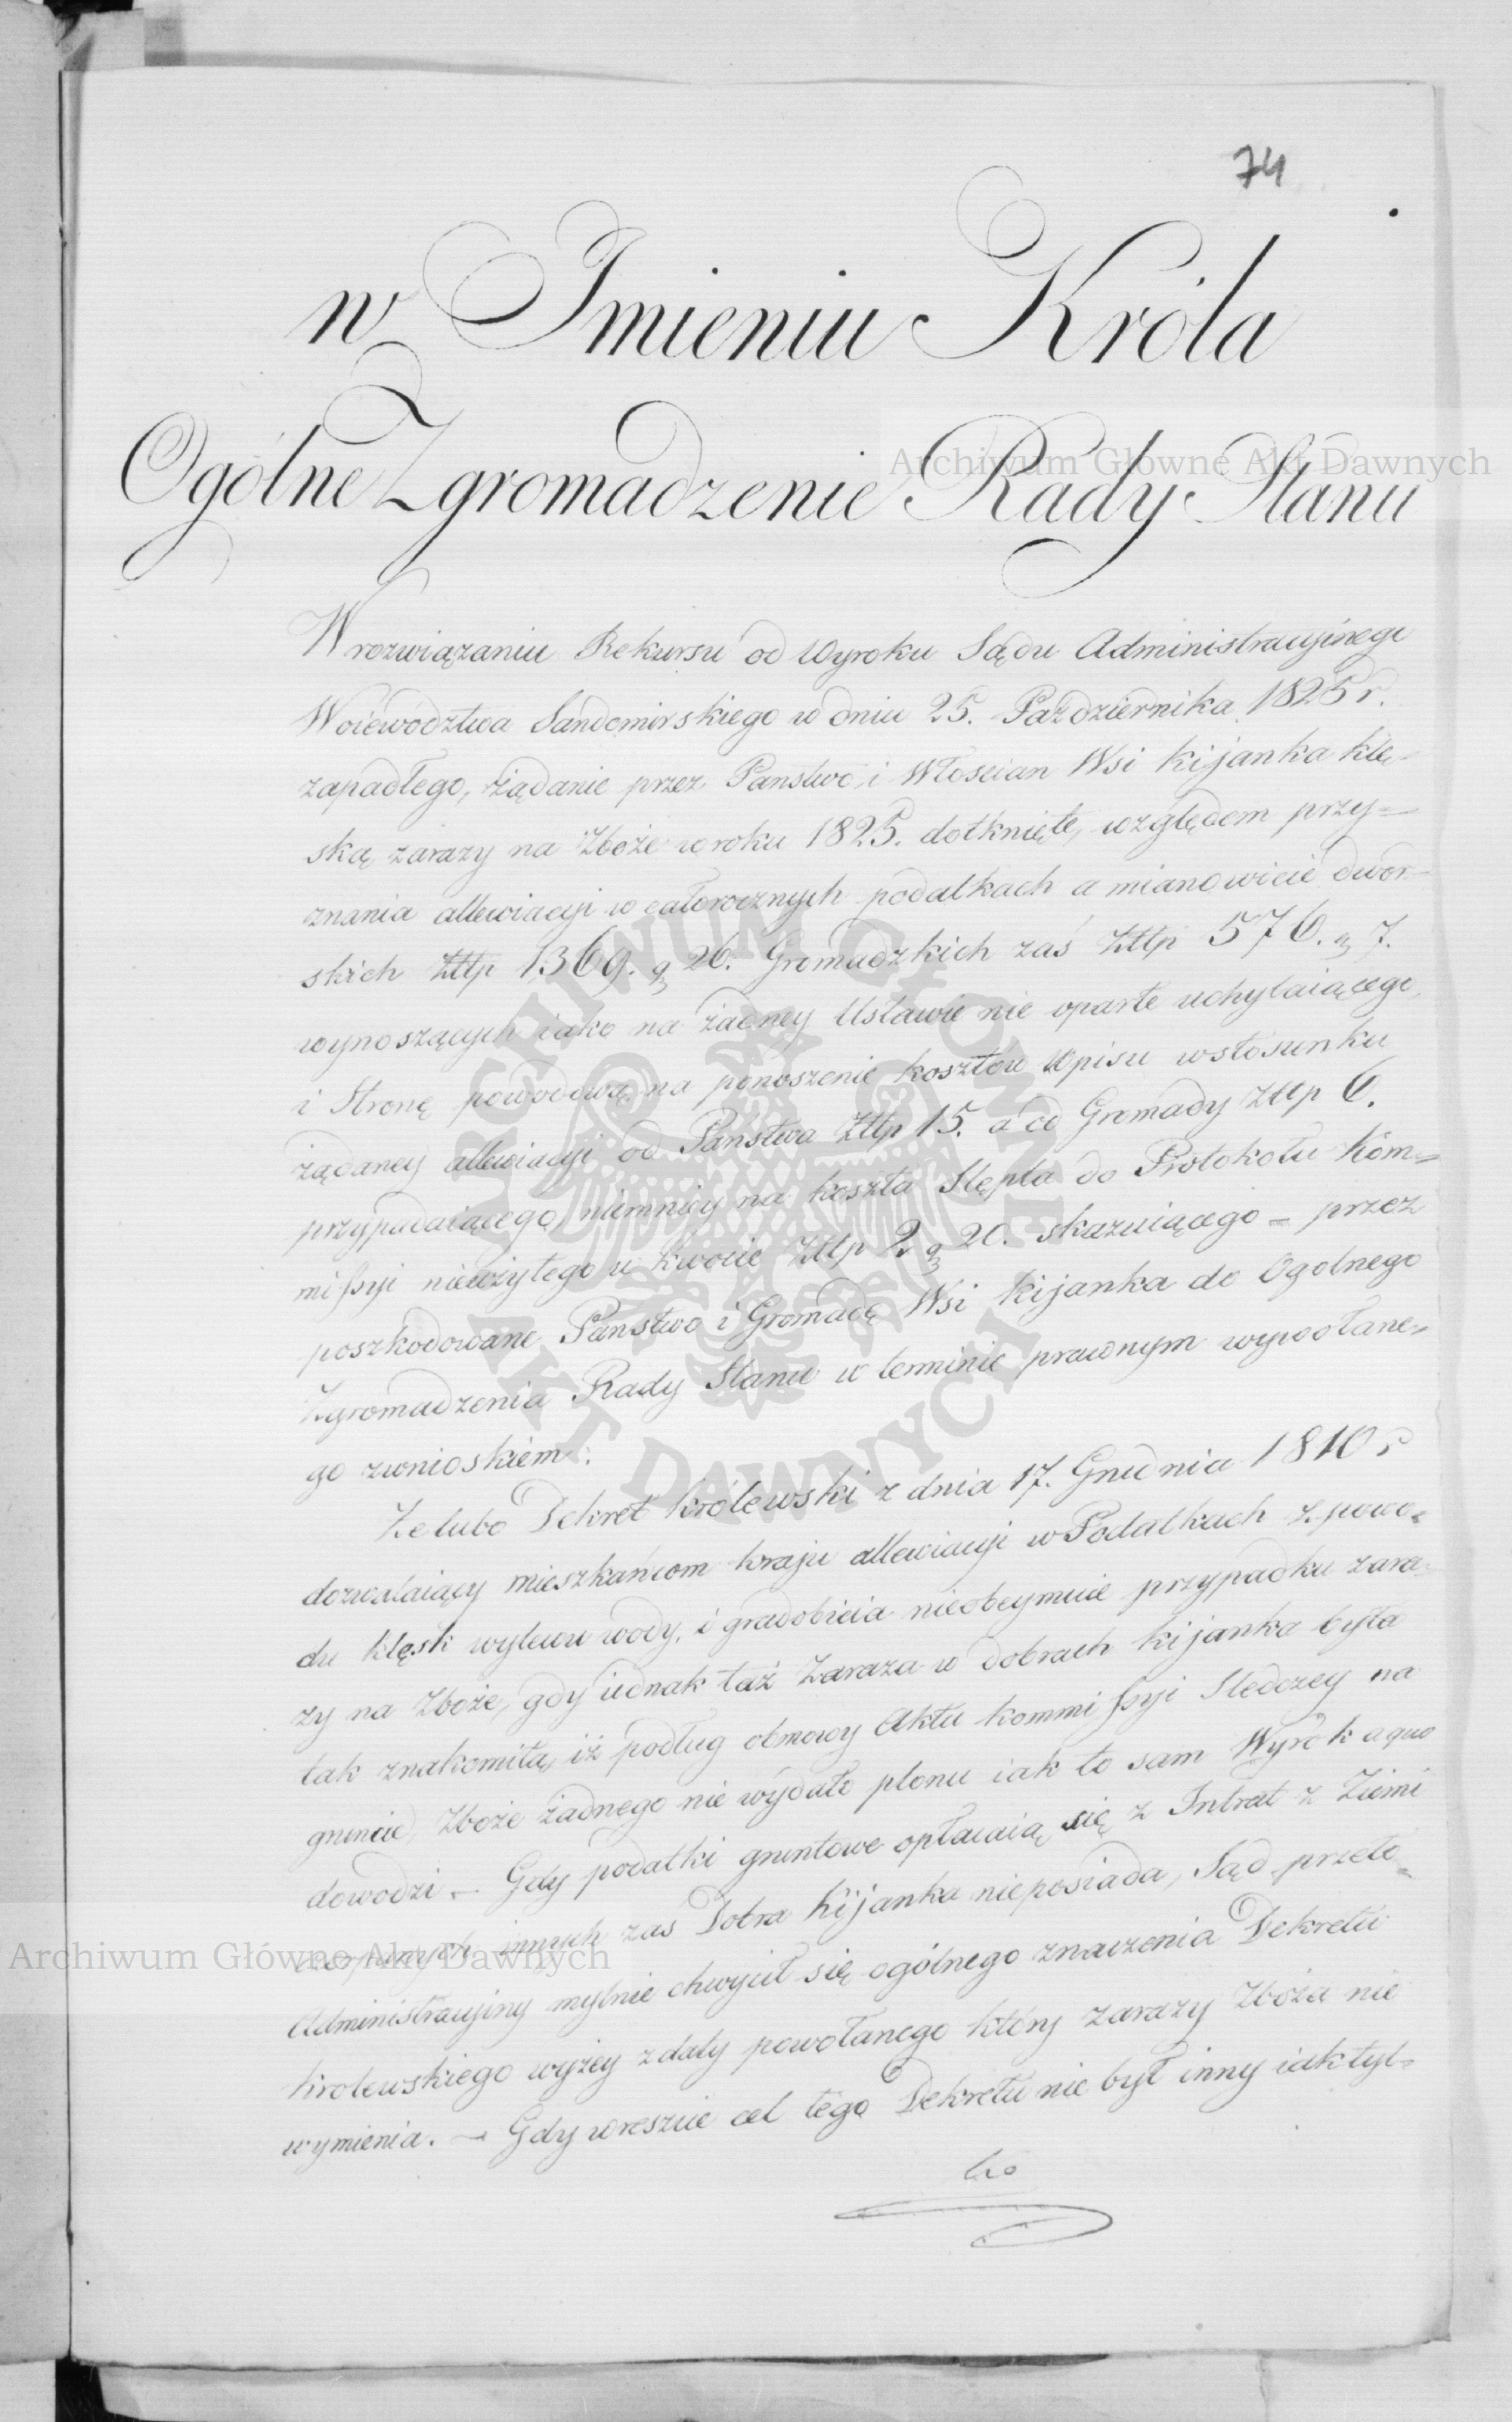 74
w Imieniu Króla
Ogólne Zgromadzenie Rady Stanu
W rozwiązaniu Rekursu od Wyroku Sądu Administracyjnego
Woiewództwa Sandomirskiego w dniu 25. Pazdziernika 1825 r.
zapadłego, żądanie przez Panstwo i Włoscian Wsi Kijanka klę-
ską zarazy na Zboże w roku 1825. dotknięte, względem przy=
znania allewiacyi w całorocznych podatkach a mianowicie dwor-
skich Złtp 1369. g 26. Gromadzkich zaś Złtp 576. g 7.
wynoszących iako na żadney Ustawie nie oparte uchylaiącego,
i Stronę powodową na ponoszenie kosztów Wpisu w stosunku
żądaney allewiacyi od Państwa Złtp 15. a od Gromady Złtp 6.
przypadaiącego, niemniey na koszta Stępla do Protokołu Kom=
missyi nieużytego w kwocie Złtp 2 g 20. skazuiącego = przez
poszkodowane Państwo i Gromadę Wsi Kijanka do Ogolnego
Zgromadzenia Rady Stanu w terminie prawnym wywołane=
go z wnioskiem:
Ze lubo Dekret Królewski z dnia 17. Grudnia 1810 r
dozwalaiący mieszkańcom kraju allewiacyi w Podatkach z powo=
du klęsk wylewu wody, i gradobicia nieobeymuie przypadku zara-
zy na Zboże, gdy iednak taż Zaraza w dobrach Kijanka była
tak znakomitą, iż podług osnowy Aktu Kommissyi Sledczey na
gruncie, Zboże żadnego nie wydało plonu iak to sam Wyrok a quo
dowodzi – Gdy podatki gruntowe opłacaią się z Intrat z Ziemi
innych zaś Dobra Kijanka nieposiada, Sąd przeto=
Administracyjny mylnie chwycił się ogólnego znaczenia Dekretu
Krolewskiego wyżey z daty powołanego który zarazy Zboża nie
wymienia. – Gdy wreszcie cel tego Dekretu nie był inny iak tyl=
ko
Archiwum Główne Akt Dawnych
Archiwum Główne Akt Dawnych
ARCHIWUM GŁÓWNE
AKT DAWNYCH